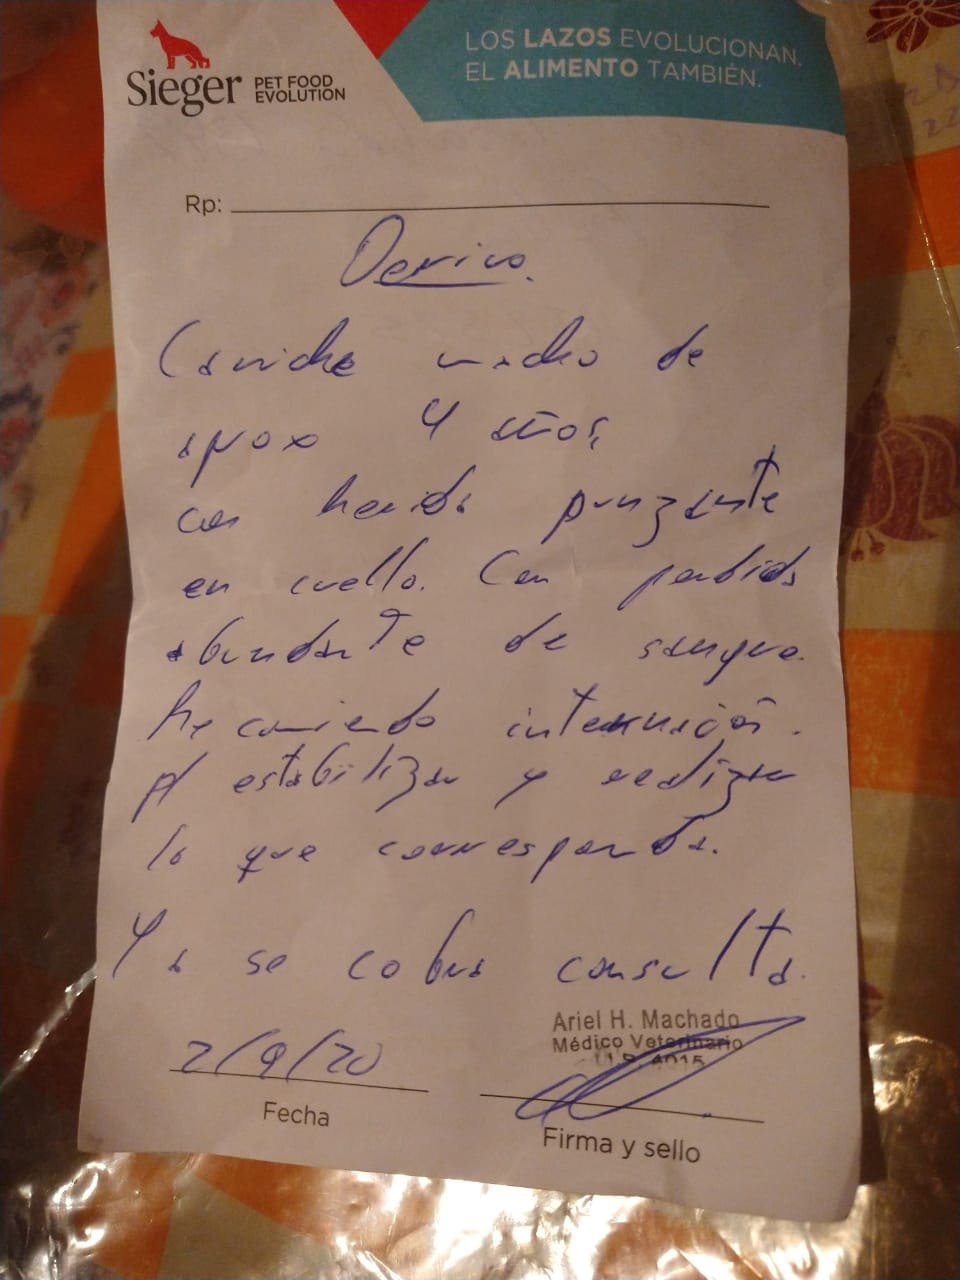 Sieger PET FOOD EVOLUTION
LOS LAZOS EVOLUCIONAN.
EL ALIMENTO TAMBIÉN.
Rp:
Derivo.
Caniche macho de
aprox 4 años,
con herida punzante
en cuello. Con perdida
abundante de sangre.
Recomiendo internación.
p/ estabilizar y realizar
lo que corresponda.
Ya se cobro consulta.
Ariel H. Machado
Médico Veterinario
2/9/20
Fecha
Firma y sello